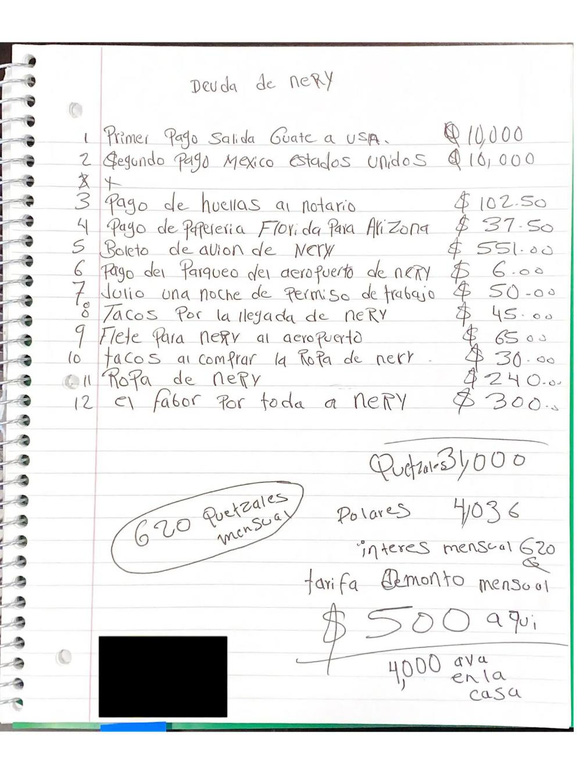 Deuda de NERY
1 Primer Pago Salida Guate a USA. Q 10,000
2 Segundo Pago Mexico estados unidos Q 10,000
3 Pago de huellas al notario $ 102.50
4 Pago de Papeleria Florida Para Arizona $ 37.50
5 Boleto de avion de Nery $ 551.00
6 Pago del Parqueo del aeropuerto de nery $ 6.00
7 Julio una noche de Permiso de trabajo $ 50.00
8 Tacos Por la llegada de NERY $ 45.00
9 Flete Para NERY al aeropuerto $ 65 00
10 tacos al comprar la Ropa de nery. $ 30.00
11 Ropa de NERY $ 240.00
12 el fabor por toda a NERY $ 300.00
Quetzales 31,000
620 Quetzales
mensual
Dolares 4,036
interes mensual 620
Q
tarifa de monto mensual
$ 500 aqui
4,000 ava
en la
casa